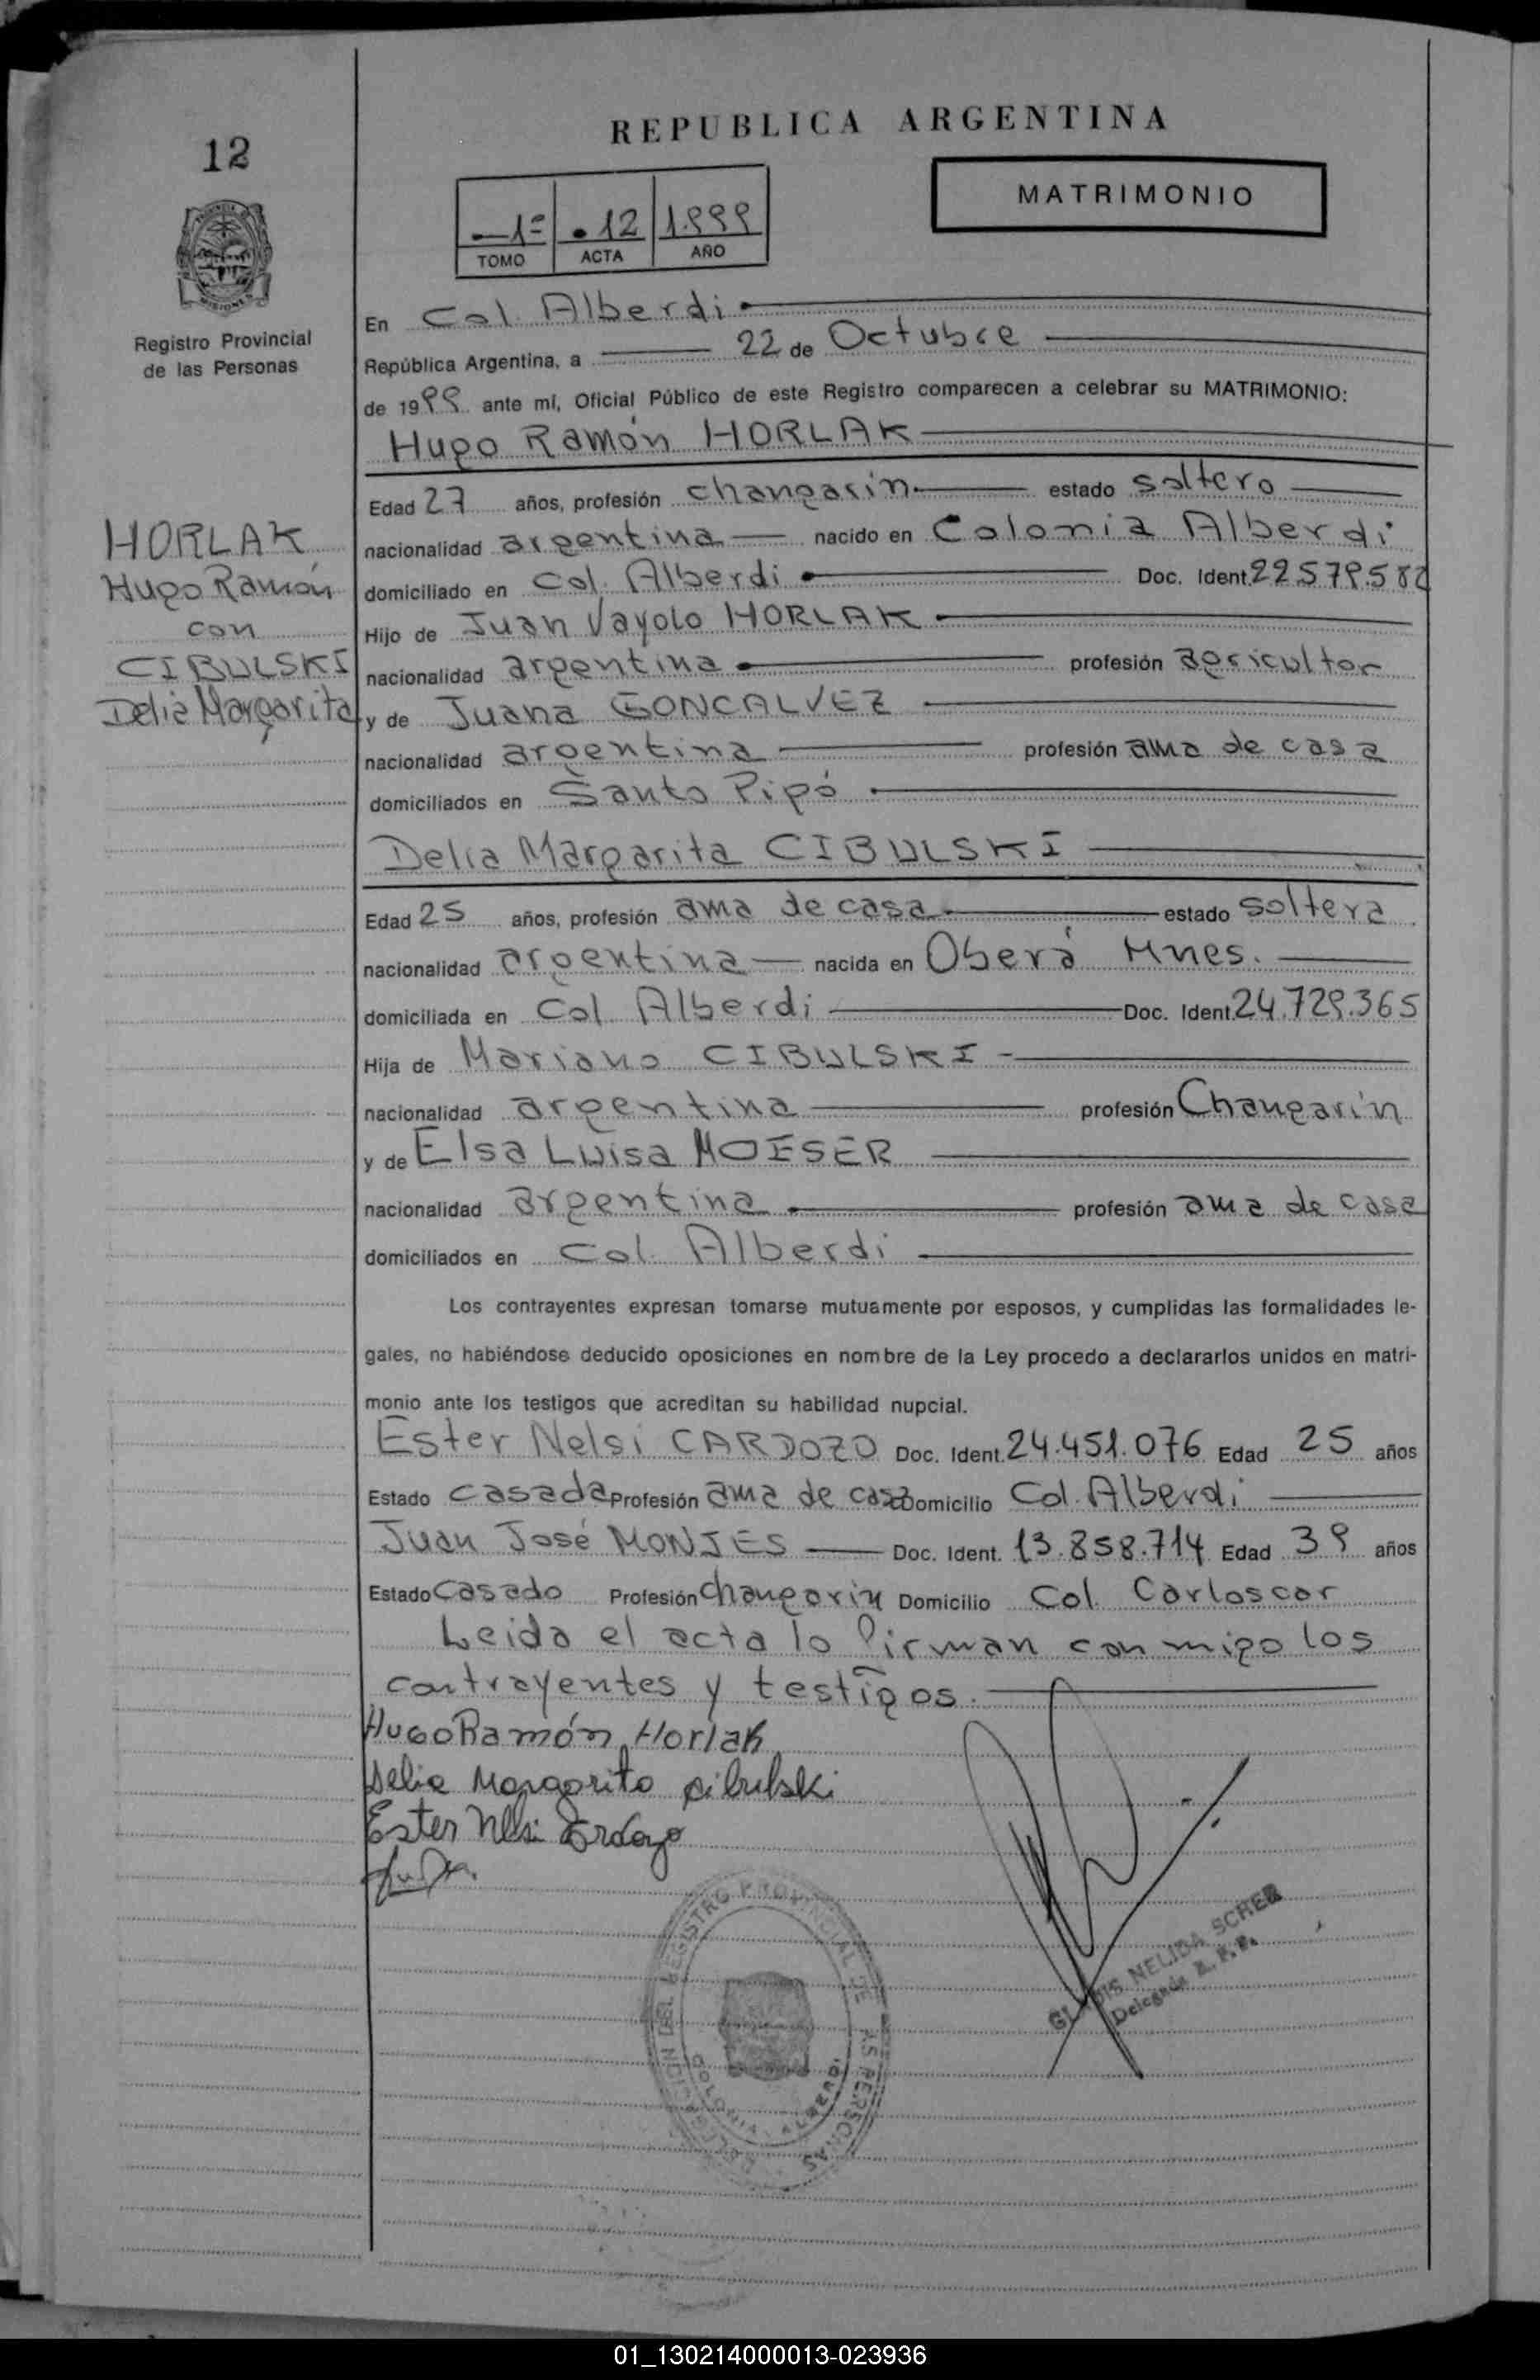 12
REPUBLICA ARGENTINA
MATRIMONIO
1º .12 1.999
TOMO ACTA AÑO
Registro Provincial
de las Personas
HORLAK
Hugo Ramón
con
CIBULSKI
Delia Margarita
En Col. Alberdi
República Argentina, a 22 de Octubre
de 1999 ante mí, Oficial Público de este Registro comparecen a celebrar su MATRIMONIO:
Hugo Ramón HORLAK
Edad 27 años, profesión changarin estado soltero
nacionalidad argentina nacido en Colonia Alberdi
domiciliado en Col. Alberdi Doc. Ident. 22.579.582
Hijo de Juan Vayolo HORLAK
nacionalidad argentina profesión agricultor
y de Juana GONCALVEZ
nacionalidad argentina profesión ama de casa
domiciliados en Santo Pipó
Delia Margarita CIBULSKI
Edad 25 años, profesión ama de casa estado soltera
nacionalidad argentina nacida en Oberá Mnes.
domiciliada en Col Alberdi Doc. Ident. 24.729.365
Hija de Mariano CIBULSKI
nacionalidad argentina profesión Changarín
y de Elsa Luisa MOESER
nacionalidad argentina profesión ama de casa
domiciliados en Col. Alberdi
Los contrayentes expresan tomarse mutuamente por esposos, y cumplidas las formalidades le-
gales, no habiéndose deducido oposiciones en nombre de la Ley procedo a declararlos unidos en matri-
monio ante los testigos que acreditan su habilidad nupcial.
Ester Nelsi CARDOZO Doc. Ident. 24.451.076 Edad 25 años
Estado casada Profesión ama de casa Domicilio Col. Alberdi
Juan José MONJES Doc. Ident. 13.858.714 Edad 39 años
Estado Casado Profesión changarin Domicilio Col. Carloscor
Leida el acta lo firman conmigo los
contrayentes y testigos.
Hugo Ramón Horlak
Delia Margarita Cibulski
Ester Nelsi Cardozo
GLADIS NELIDA SCHER
Delegada R. P. P.
REGISTRO PROVINCIAL DE LAS PERSONAS
COLONIA ALBERDI
01_130214000013-023936